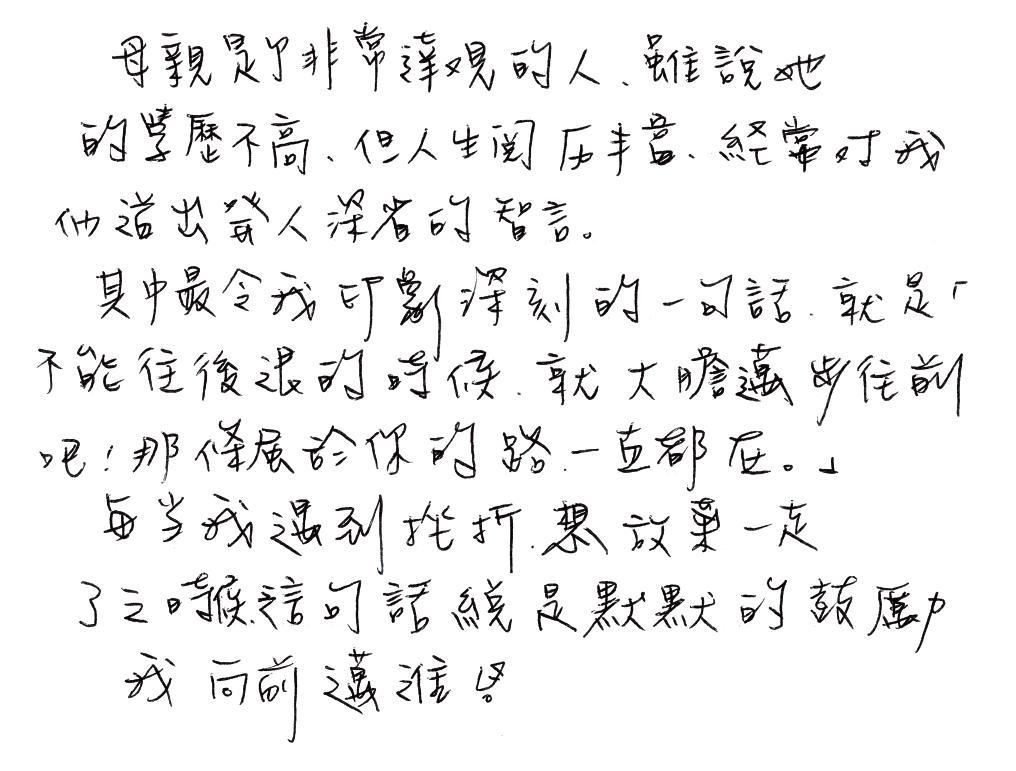 母親是个非常達观的人、雖說她
的學歷不高、但人生閱历丰富、経常对我
们道出發人深省的智言。
其中最令我印象深刻的一句話、就是「
不能往後退的時候、就大膽邁步往前
吧！那條屬於你的路、一直都在。」
每当我遇到挫折、想放棄一走
了之時候、這句話総是默默的鼓厲力
我向前邁進！